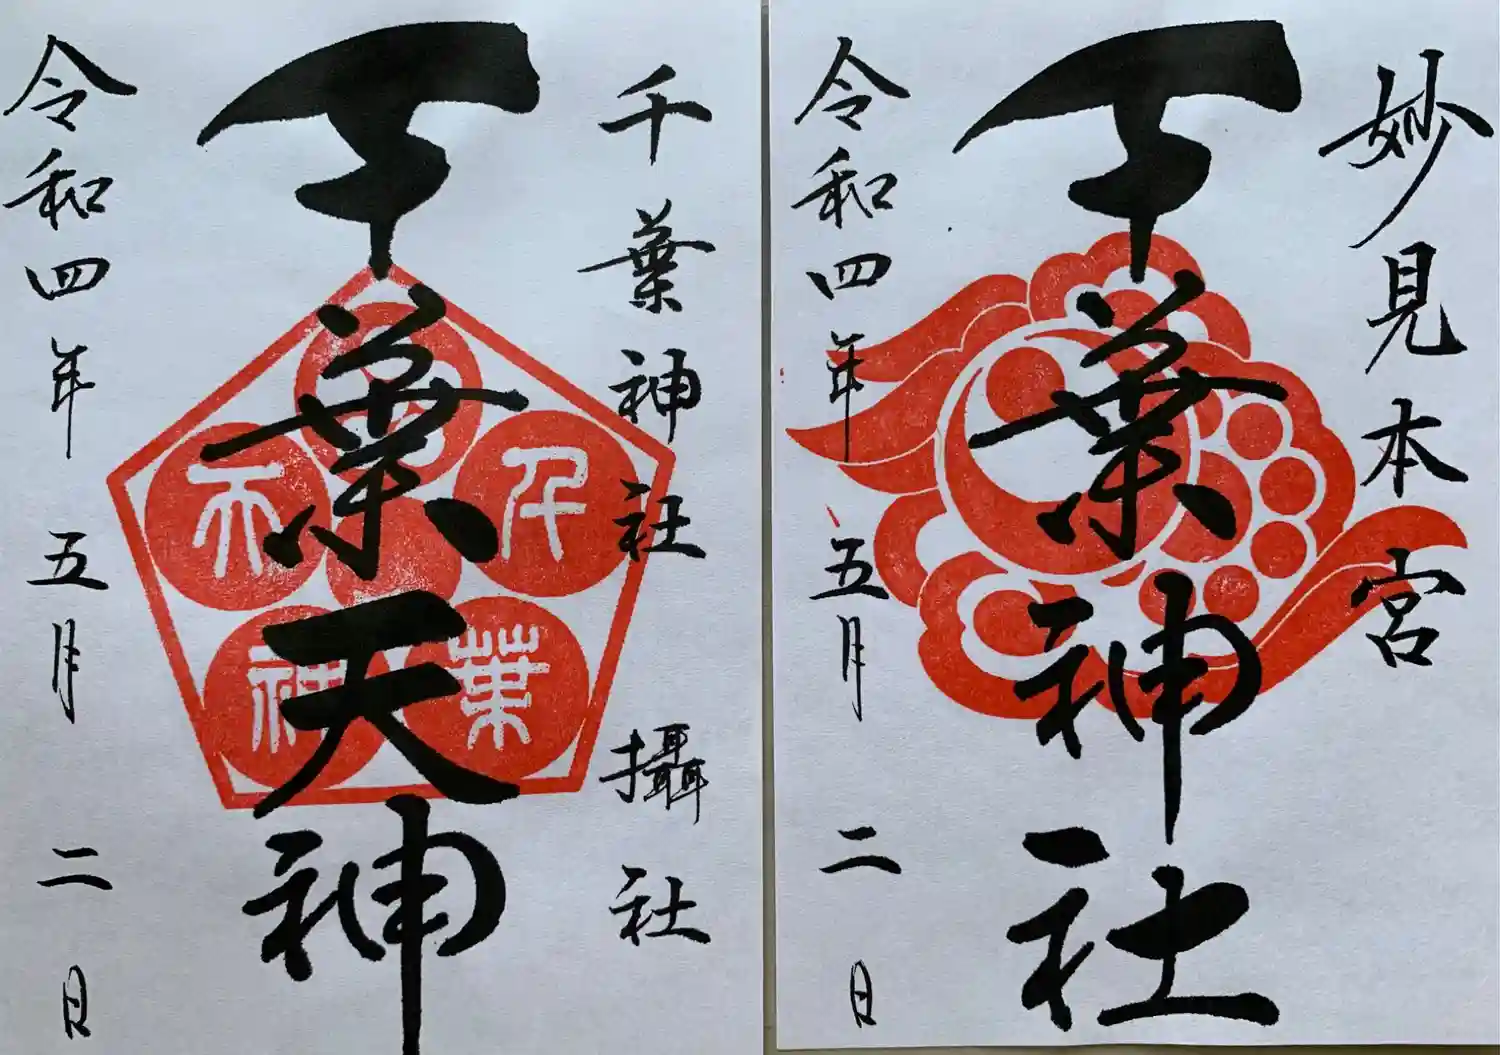 妙見本宮
千葉神社
令和四年五月二日
千葉神社 攝社
千葉天神
令和四年五月二日
千葉
天神